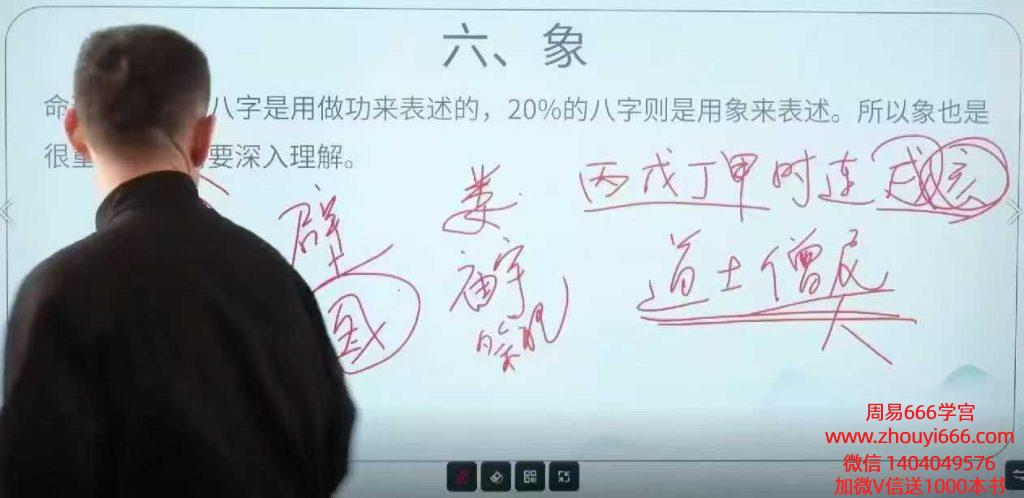 六、象
命
八字是用做功来表述的，20%的八字则是用象来表述。所以象也是
很
要深入理解。
丙戊丁甲时连戌亥
壁
娄
道士僧尼
庙宇
人
周易666学宫
www.zhouyi666.com
微信 1404049576
加微V信送1000本书